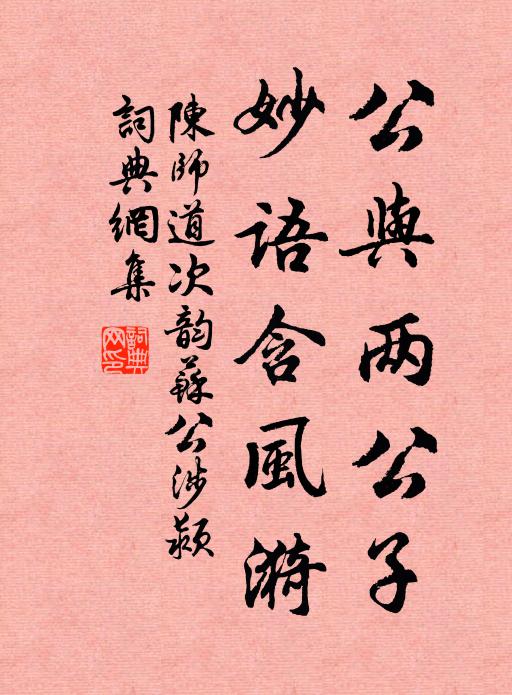 公與两公子
妙語含風漪
陳師道次韵蘇公涉潁
詞典網集
詞典网印